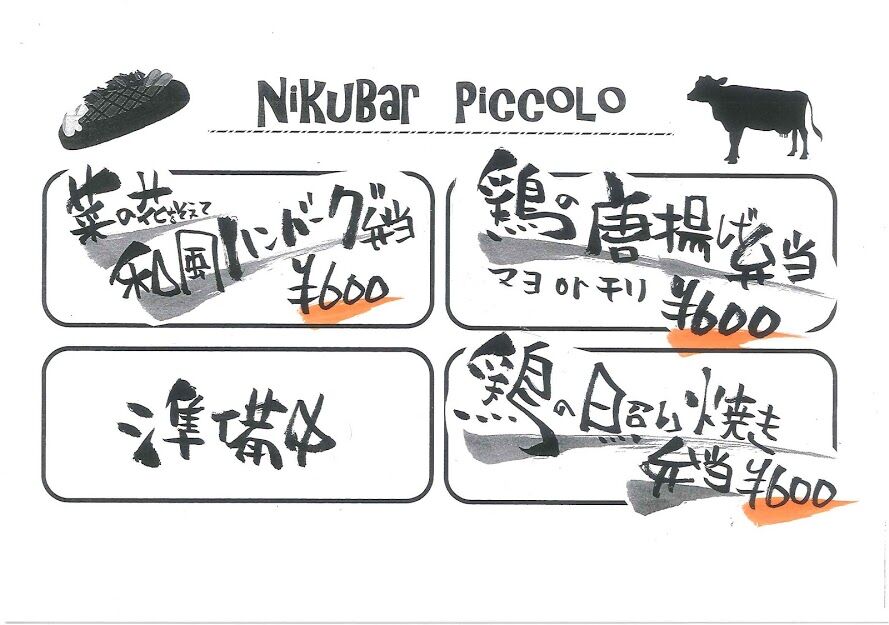 NiKUBar PiCCOLO
菜の花添えて
和風ハンバーグ弁当
¥600
鶏の唐揚げ弁当
マヨorチリ
¥600
準備中
鶏の照り焼き
弁当¥600